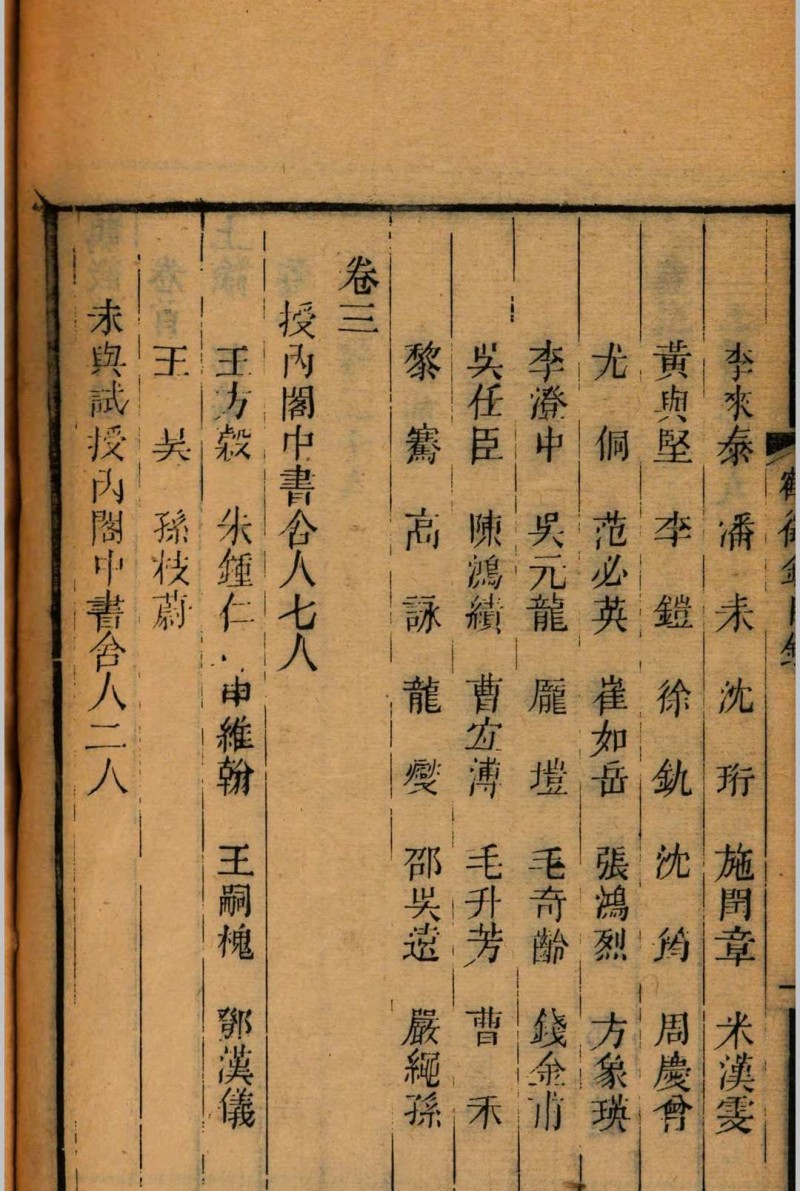 鶴徵錄目錄 一
李來泰 潘耒 沈珩 施閏章 米漢雯
黃與堅 李鎧 徐釚 沈筠 周慶曾
尤侗 范必英 崔如岳 張鴻烈 方象瑛
李澄中 吳元龍 龐塏 毛奇齡 錢金甫
吳任臣 陳鴻績 曹宜溥 毛升芳 曹禾
黎騫 高詠 龍燮 邵吳遠 嚴繩孫
卷三
授內閣中書舍人七人
王方穀 朱鍾仁 申維翰 王嗣槐 鄧漢儀
王昊 孫枝蔚
未與試授內閣中書舍人二人